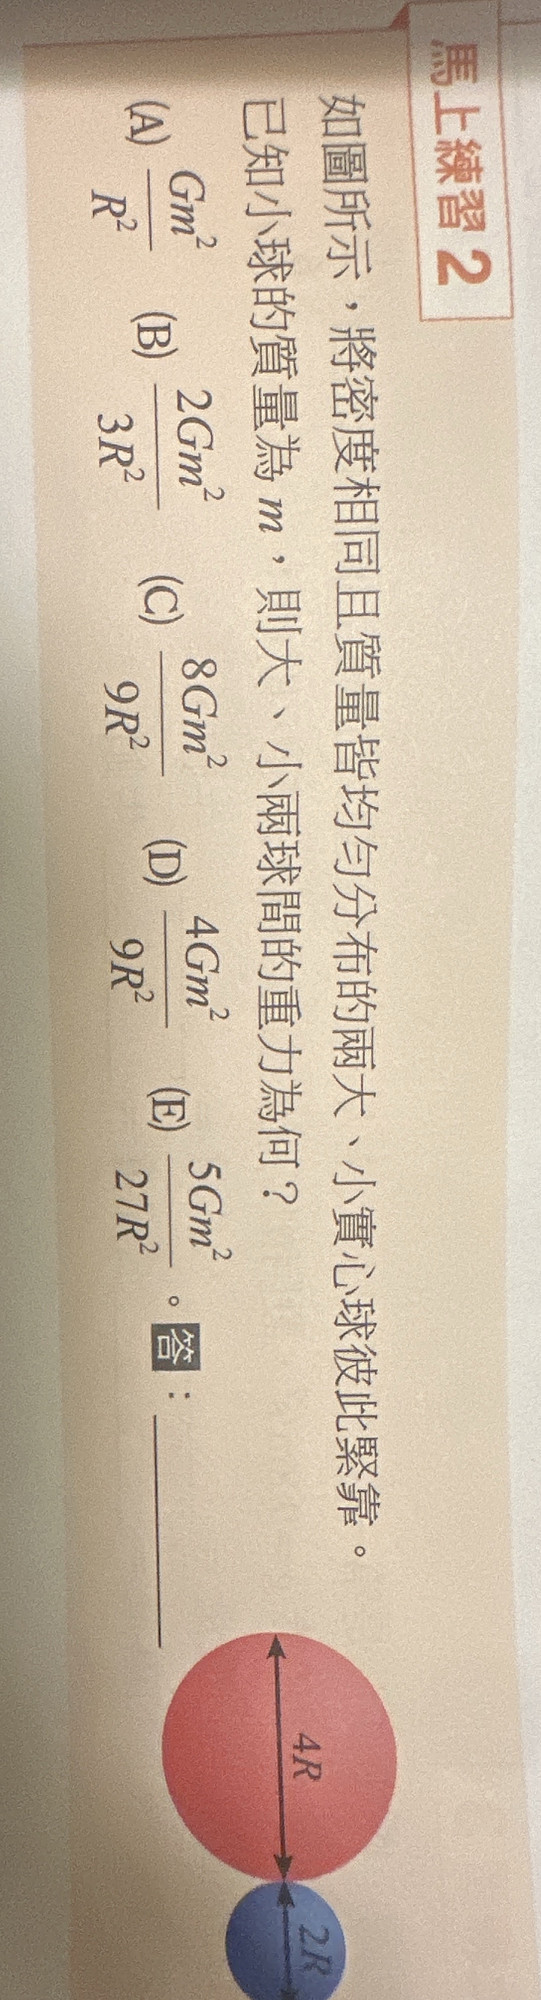 馬上練習2
如圖所示，將密度相同且質量皆均勻分布的兩大、小實心球彼此緊靠。
已知小球的質量為 m，則大、小兩球間的重力為何？
(A) Gm²/R² (B) 2Gm²/3R² (C) 8Gm²/9R² (D) 4Gm²/9R² (E) 5Gm²/27R² 。答：
4R
2R